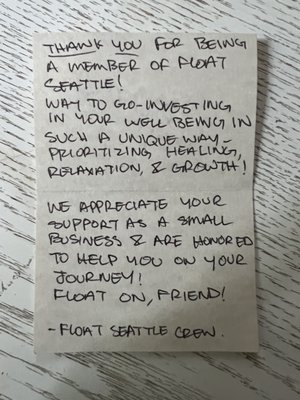 THANK YOU FOR BEING
A MEMBER OF FLOAT
SEATTLE!
WAY TO GO-INVESTING
IN YOUR WELL BEING IN
SUCH A UNIQUE WAY-
PRIORITIZING HEALING,
RELAXATION, & GROWTH!
WE APPRECIATE YOUR
SUPPORT AS A SMALL
BUSINESS & ARE HONORED
TO HELP YOU ON YOUR
JOURNEY!
FLOAT ON, FRIEND!
-FLOAT SEATTLE CREW.